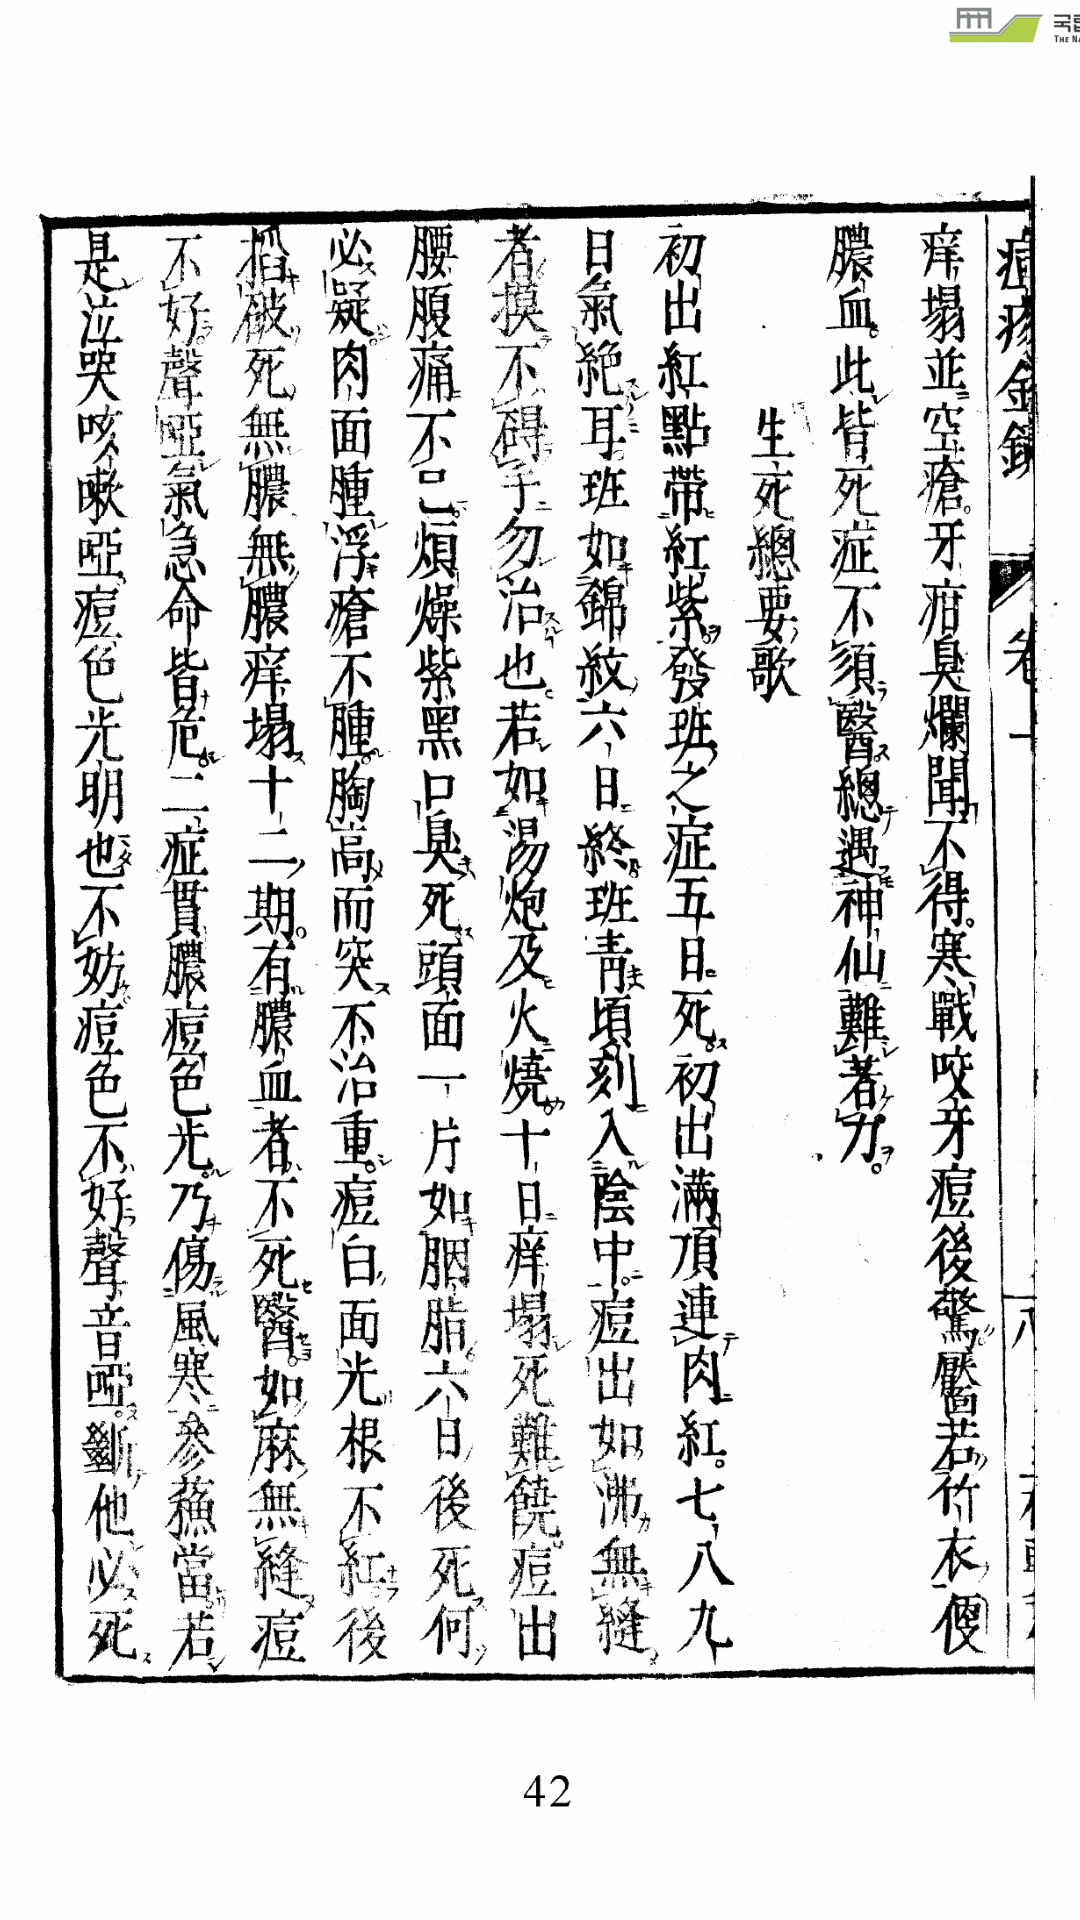 痒塌並空瘡牙疳臭爛聞不得寒戰咬牙痘後驚壓若竹衣便
膿血此皆死症不須醫總遇神仙難著力
生死總要歌
初出紅點帶紅紫發班之症五日死初出滿頂連肉紅七八九
日氣絶耳班如錦紋六日終班青頃刻入陰中痘出如沸無縫
者摸不碍手勿治也若如湯炮及火燒十日痒塌死難饒痘出
腰腹痛不已煩燥紫黑口臭死頭面一片如胭脂六日後死何
必疑肉面腫浮瘡不腫胸高而突不治重痘白面光根不紅後
搯破死無膿無膿痒塌十二期有膿血者不死醫如麻無縫痘
不好聲啞氣急命皆危二症貫膿痘色光乃傷風寒參蘓當若
是泣哭咳嗽啞痘色光明也不妨痘色不好聲音啞斷他必死
42